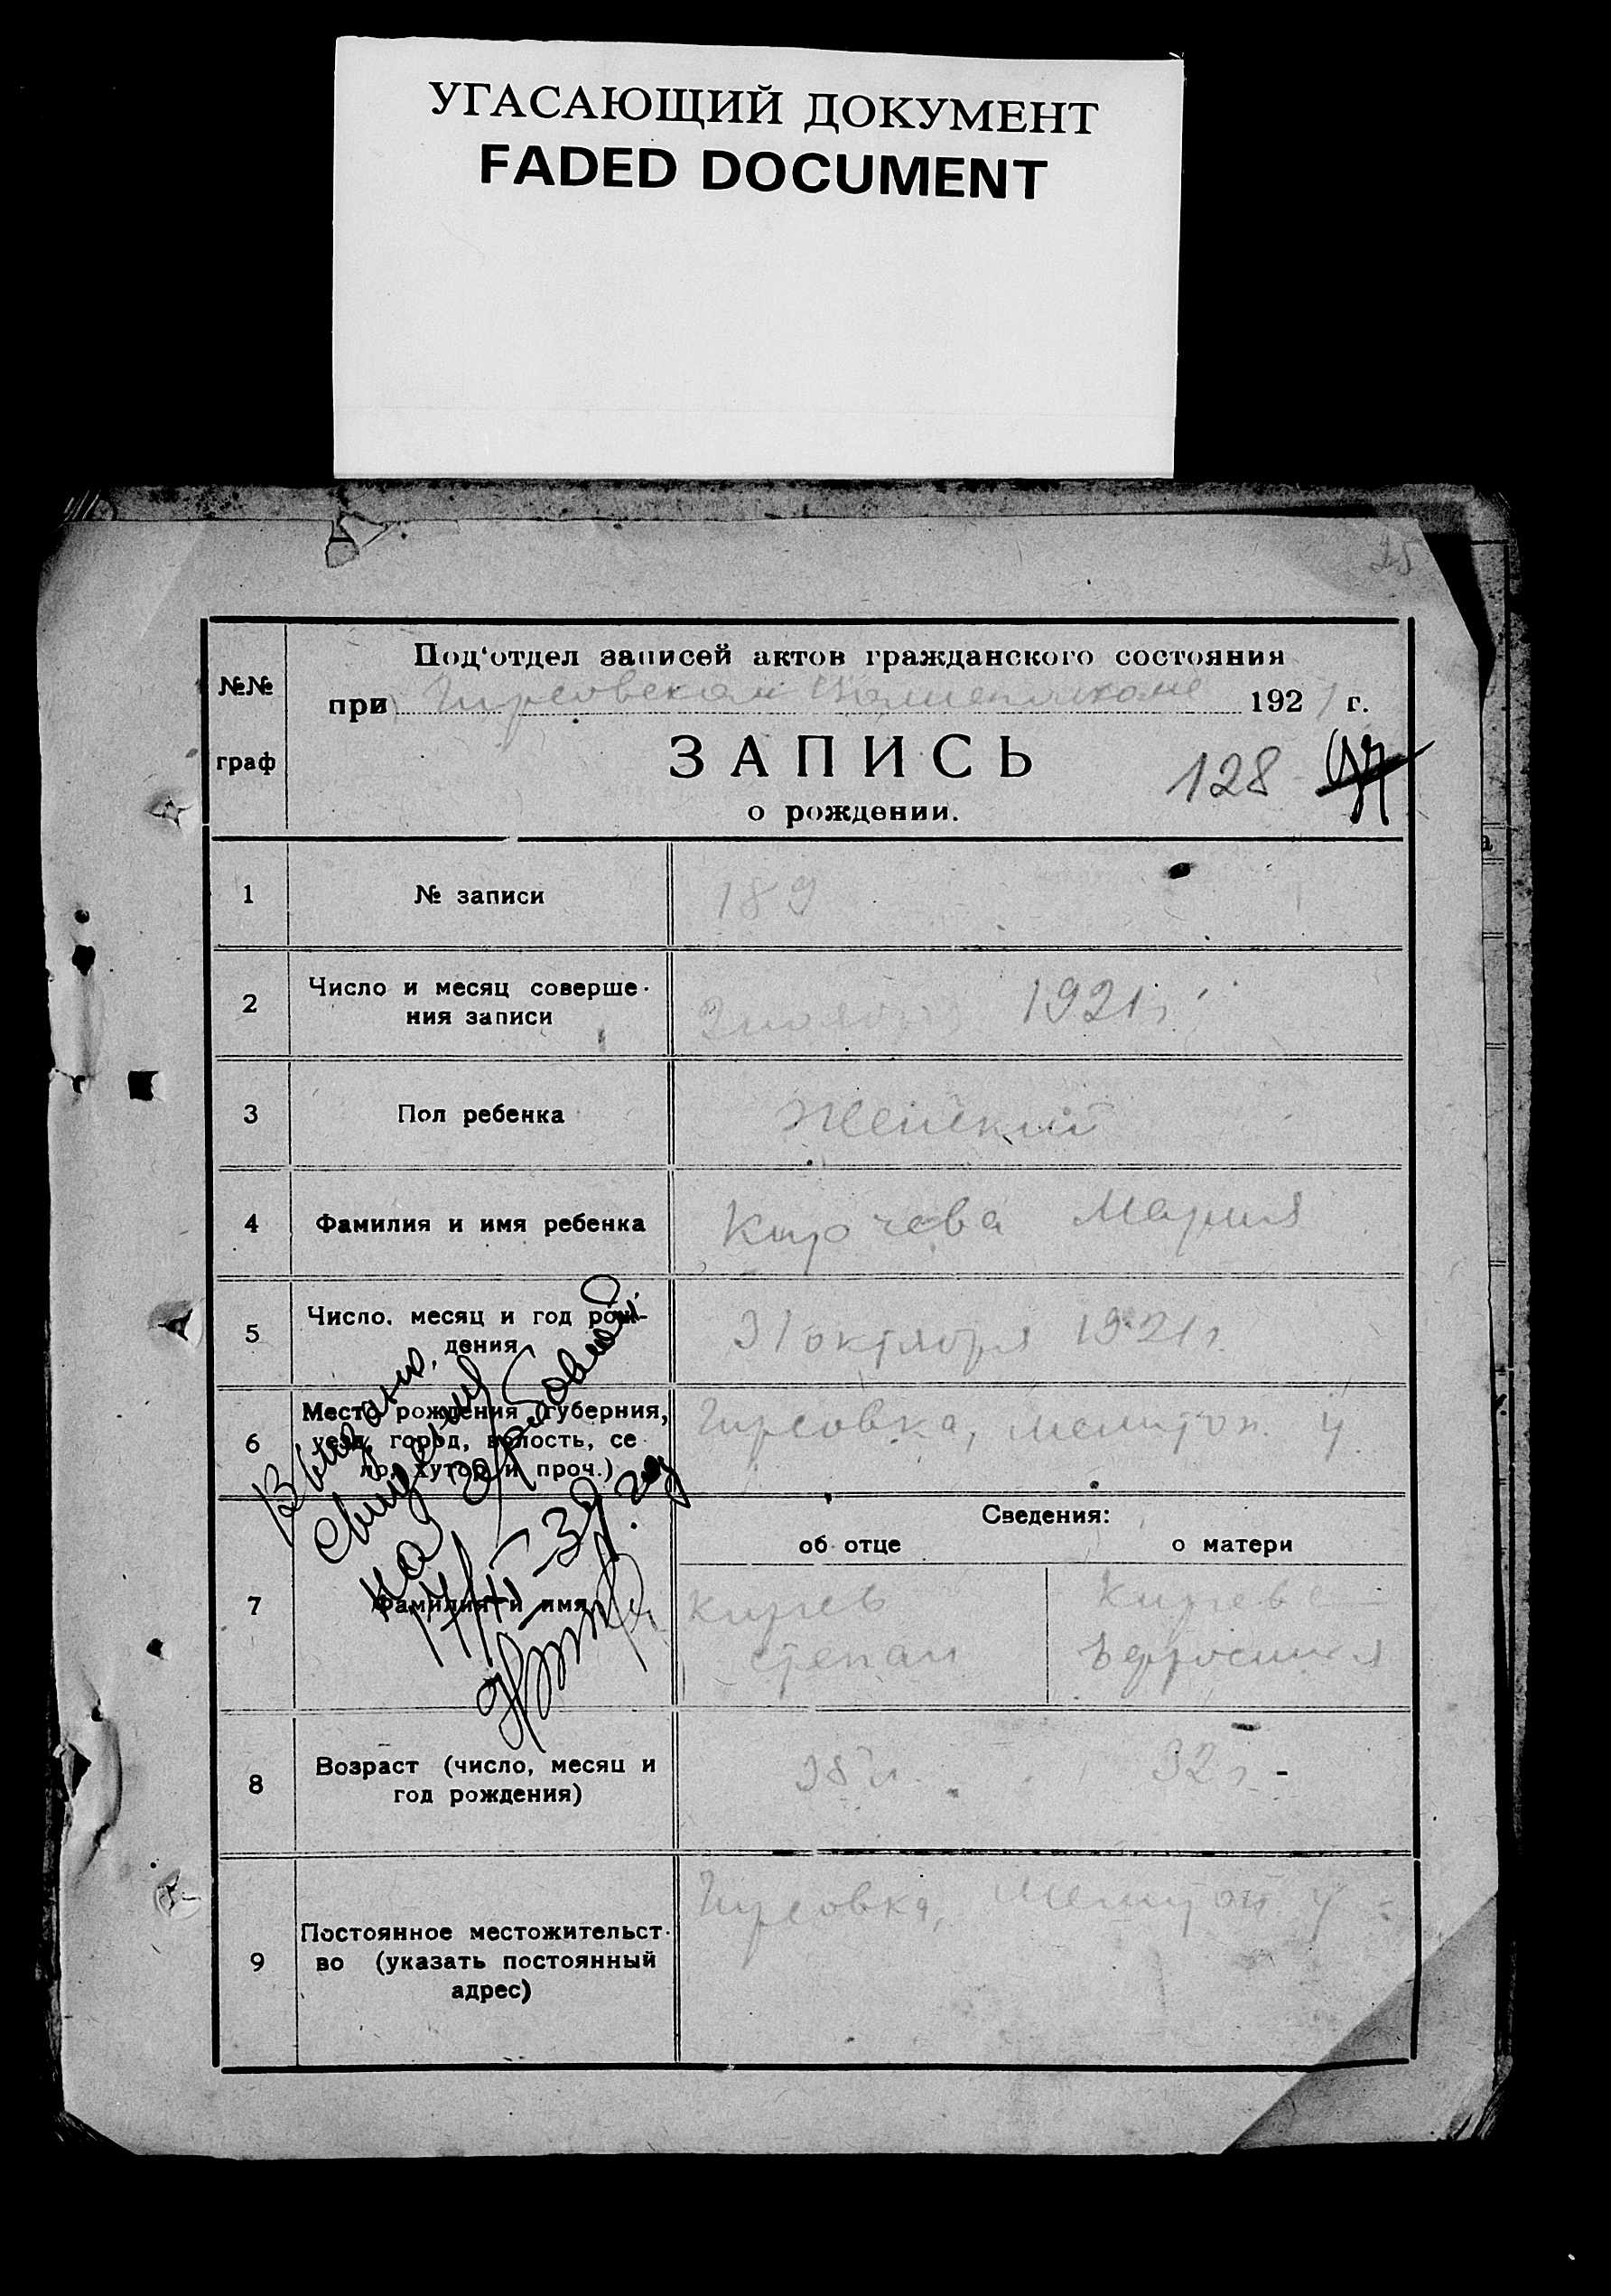 УГАСАЮЩИЙ ДОКУМЕНТ
FADED DOCUMENT
25
№№
граф
Под‘отдел записей актов гражданского состояния
при Гирсовском 1921 г.
ЗАПИСЬ
128 97
о рождении.
1 № записи 189
2 Число и месяц соверше-
ния записи
2 ноября 1921 г.
3 Пол ребенка Женский
4 Фамилия и имя ребенка Мария
5 Число, месяц и год рож-
дения
31 октября 1921 г.
6 Место рождения (губерния,
уезд, город, волость, се
ло, хутор и проч.)
Гирсовка, мелитоп. у
Сведения:
об отце о матери
7 Фамилия и имя
Степан
8 Возраст (число, месяц и
год рождения)
38 л. 32 г.
9 Постоянное местожительст-
во (указать постоянный
адрес)
Гирсовка, Мелитоп у
на